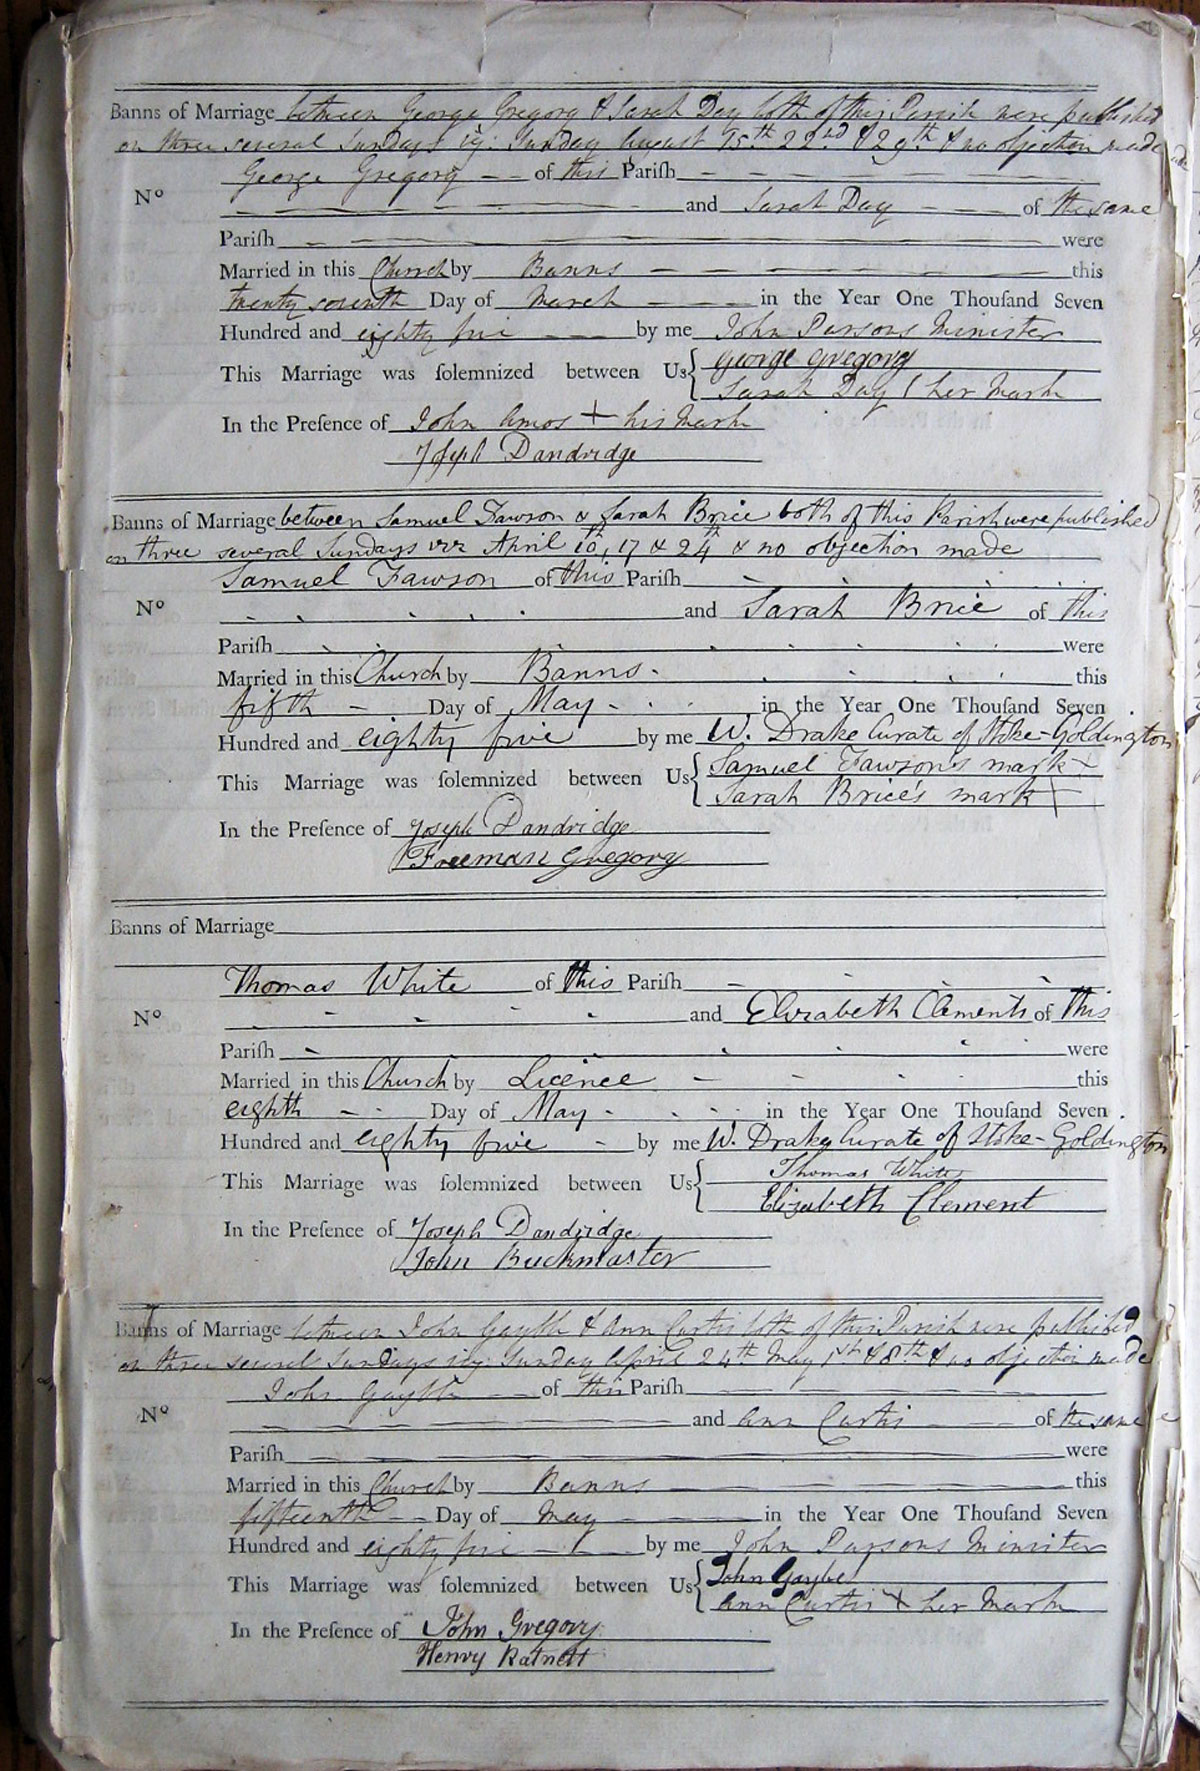 Banns of Marriage between George Gregory & Sarah Day both of this Parish were published
on three several Sundays viz: Sunday August 15th 22nd & 29th & no objection made
George Gregory of this Pariſh
No
and Sarah Day of the same
Pariſh were
Married in this Church by Banns this
twenty seventh Day of March in the Year One Thouſand Seven
Hundred and eighty five by me John Parsons Minister
This Marriage was ſolemnized between Us George Gregory
Sarah Day ( her Mark
In the Preſence of John Amos + his Mark
Joseph Dandridge
Banns of Marriage between Samuel Fawson & Sarah Brice both of this Parish were published
on three several Sundays viz April 10, 17 & 24th & no objection made
Samuel Fawson of this Pariſh
No
and Sarah Brice of this
Pariſh were
Married in this Church by Banns. this
fifth Day of May in the Year One Thouſand Seven
Hundred and eighty five by me W. Drake Curate of Stoke-Goldington
This Marriage was ſolemnized between Us Samuel Fawson's mark +
Sarah Brice's mark +
In the Preſence of Joseph Dandridge
Freeman Gregory
Banns of Marriage
Thomas White of this Pariſh
No
and Elizabeth Clements of this
Pariſh were
Married in this Church by Licence this
eighth Day of May in the Year One Thouſand Seven
Hundred and eighty five by me W. Drake Curate of Stoke-Goldington
This Marriage was ſolemnized between Us Thomas White
Elizabeth Clement
In the Preſence of Joseph Dandridge
John Buckmaster
Banns of Marriage between John Gayble & Ann Curtis both of this Parish were published
on three several Sundays viz: Sunday April 24th May 1st & 8th & no objection made
John Gayble of this Pariſh
No
and Ann Curtis of the same
Pariſh were
Married in this Church by Banns this
fifteenth Day of May in the Year One Thouſand Seven
Hundred and eighty five by me John Parsons Minister
This Marriage was ſolemnized between Us John Gaybel
Ann Curtis + her Mark
In the Preſence of John Gregory
Henry Ratnett